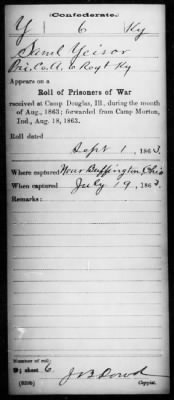 (Confederate.)
Y 6 Ky
Saml Yeisor
Pvt. Co. A, 6 Regt Ky
Appears on a
Roll of Prisoners of War
received at Camp Douglas, Ill., during the month
of Aug., 1863; forwarded from Camp Morton,
Ind., Aug. 18, 1863.
Roll dated
Sept 1, 1863.
Where captured Near Buffington, Ohio
When captured July 19, 1863.
Remarks:
Number of roll:
sheet 6
J B Dowd
Copyist.